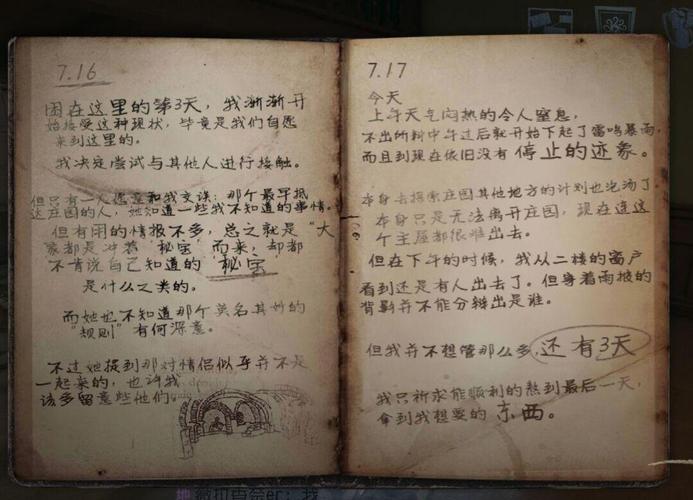 7.16
困在这里的第3天，我渐渐开
始接受这种现状，毕竟是我们自愿
来到这里的。
我决定尝试与其他人进行接触。
但只有一人愿意和我交谈：那个最早抵
达庄园的人，她知道一些我不知道的事情。
但有用的情报不多，总之就是“大
家都是冲着“秘宝”而来，却都
不肯说自己知道的“秘宝”
是什么之类的。
而她也不知道那个莫名其妙的
“规则”有何深意。
不过她提到那对情侣似乎并不是
一起来的，也许我
该多留意些他们。
7.17
今天
上午天气闷热的令人窒息，
不出所料中午过后就开始下起了雷鸣暴雨，
而且到现在依旧没有停止的迹象。
本身去探索庄园其他地方的计划也泡汤了。
本身只是无法离开庄园，现在连这
个主屋都很难出去。
但在下午的时候，我从二楼的窗户
看到还是有人出去了。但穿着雨披的
背影并不能分辨出是谁。
但我并不想管那么多，还有3天
我只祈求能顺利的熬到最后一天，
拿到我想要的东西。